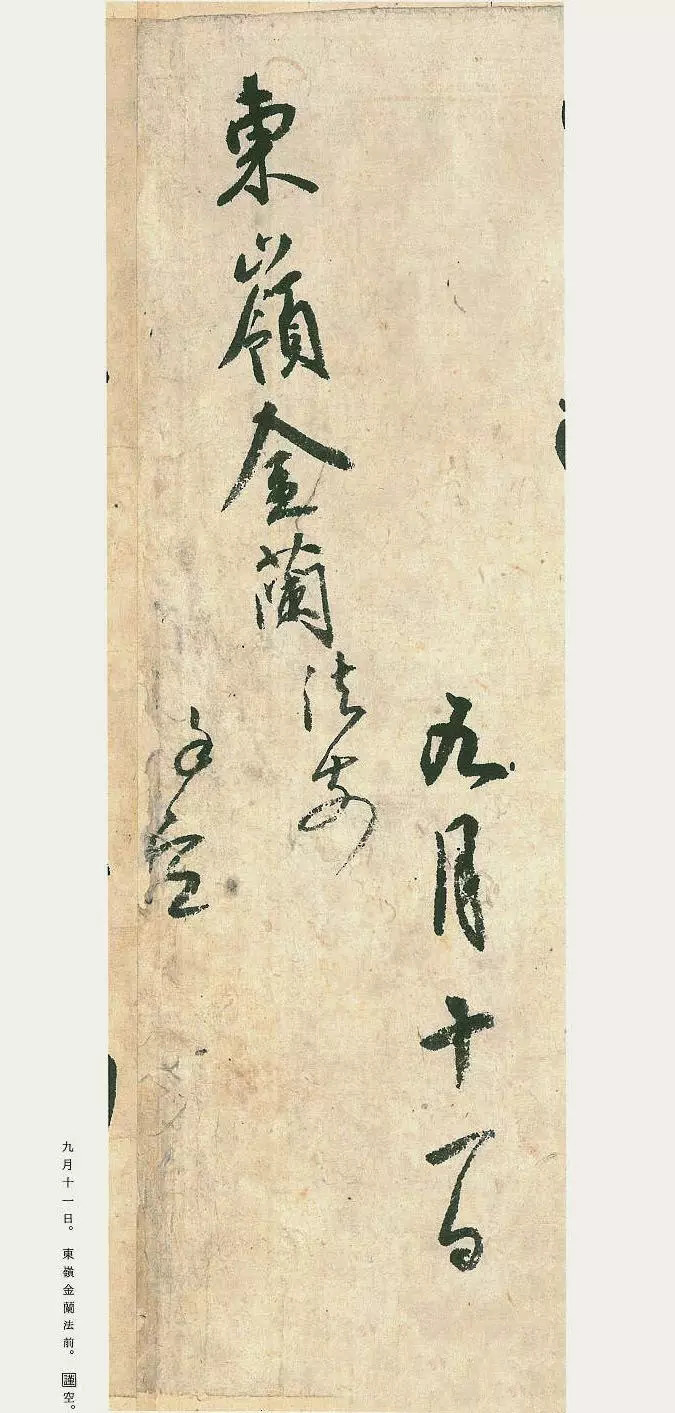 九月十一日
東嶺金蘭法前
空
九月十一日。東嶺金蘭法前。謹空。